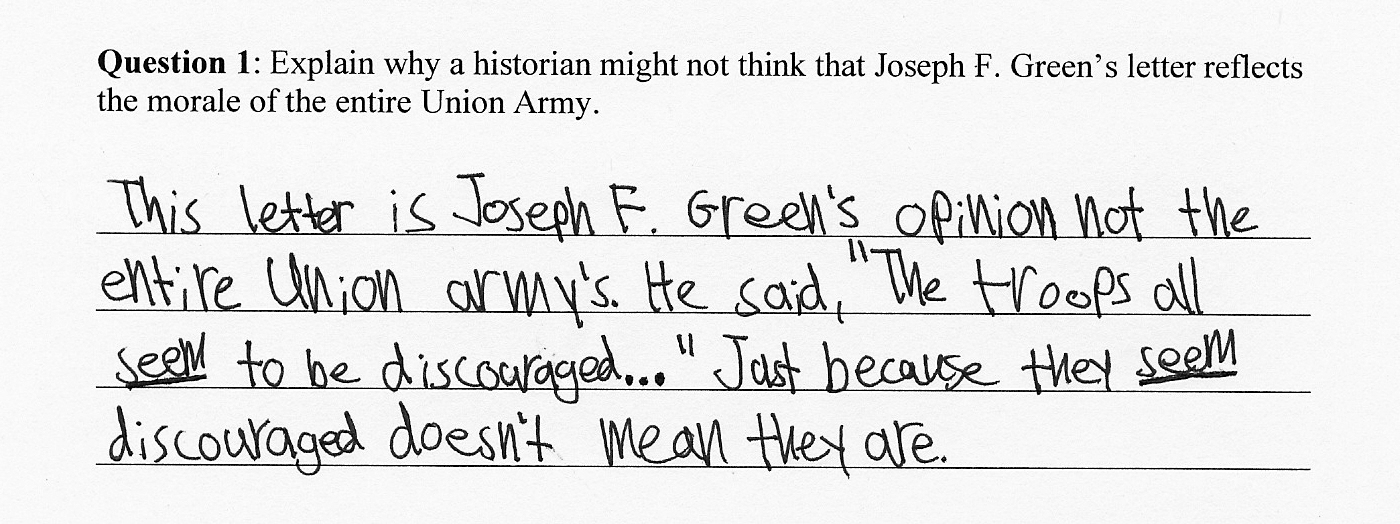 Question 1: Explain why a historian might not think that Joseph F. Green's letter reflects
the morale of the entire Union Army.
This letter is Joseph F. Green's opinion not the
entire Union army's. He said, "The troops all
seem to be discouraged..." Just because they seem
discouraged doesn't mean they are.